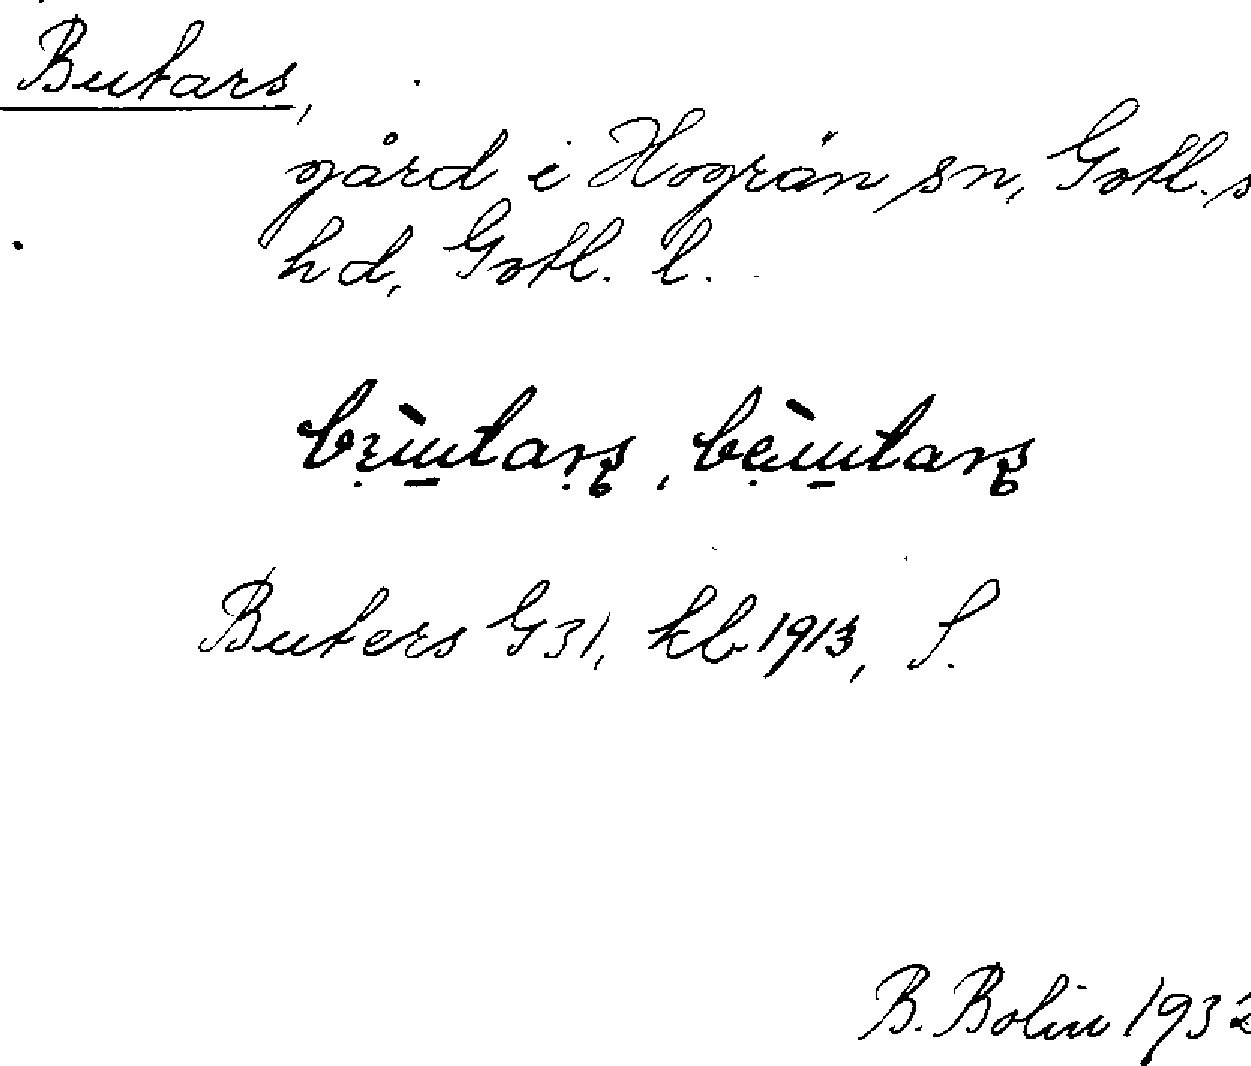 Butars,
gård i Hogrän sn, Gotl. s
hd, Gotl. l.
Buters G31, kb 1913, S.
B. Bolin 1932